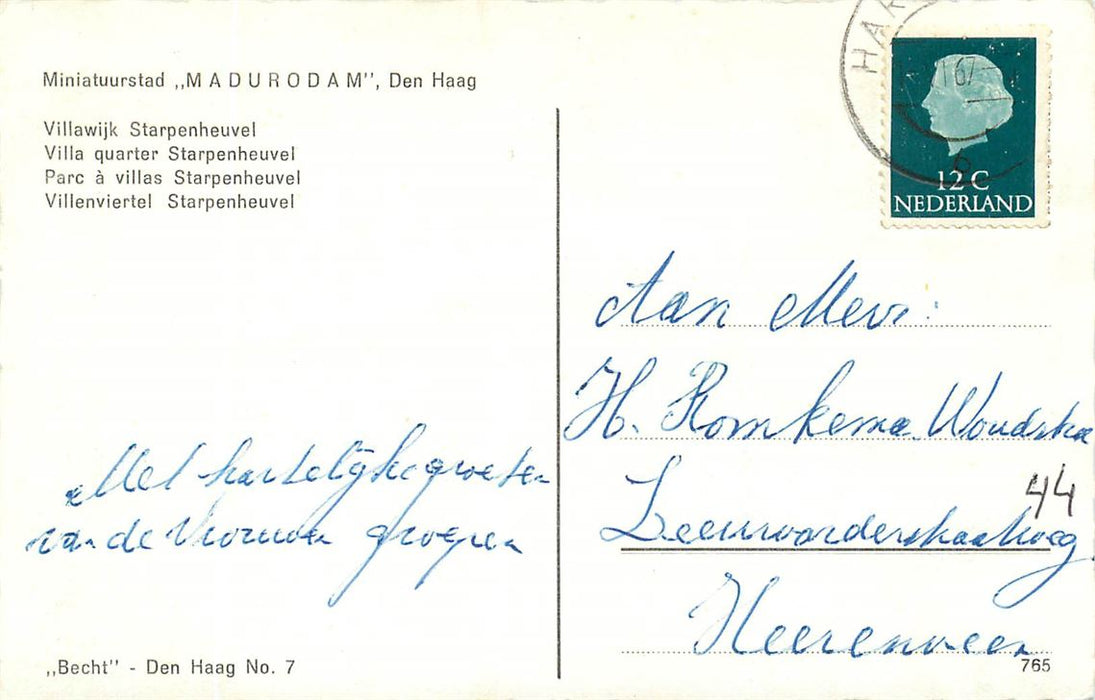 Miniatuurstad „MADURODAM", Den Haag
Villawijk Starpenheuvel
Villa quarter Starpenheuvel
Parc à villas Starpenheuvel
Villenviertel Starpenheuvel
Met hartelijke groeten
van de Vrouwen groepen
„Becht" - Den Haag No. 7
HAR
67
12 C
NEDERLAND
Aan Mevr:
H. Romkema Woudstra
44
Heerenveen
765